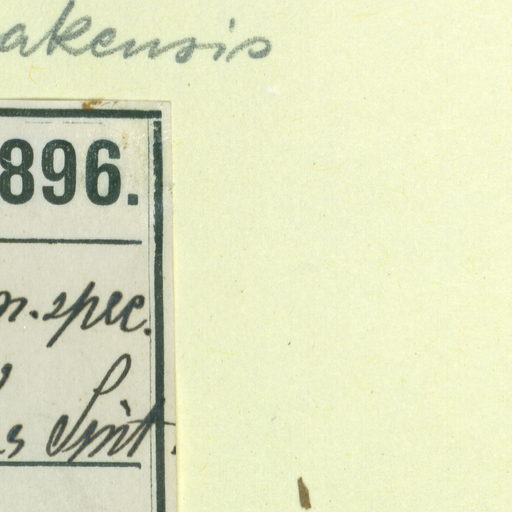 akensis
896.
n. spec.
s Sint.